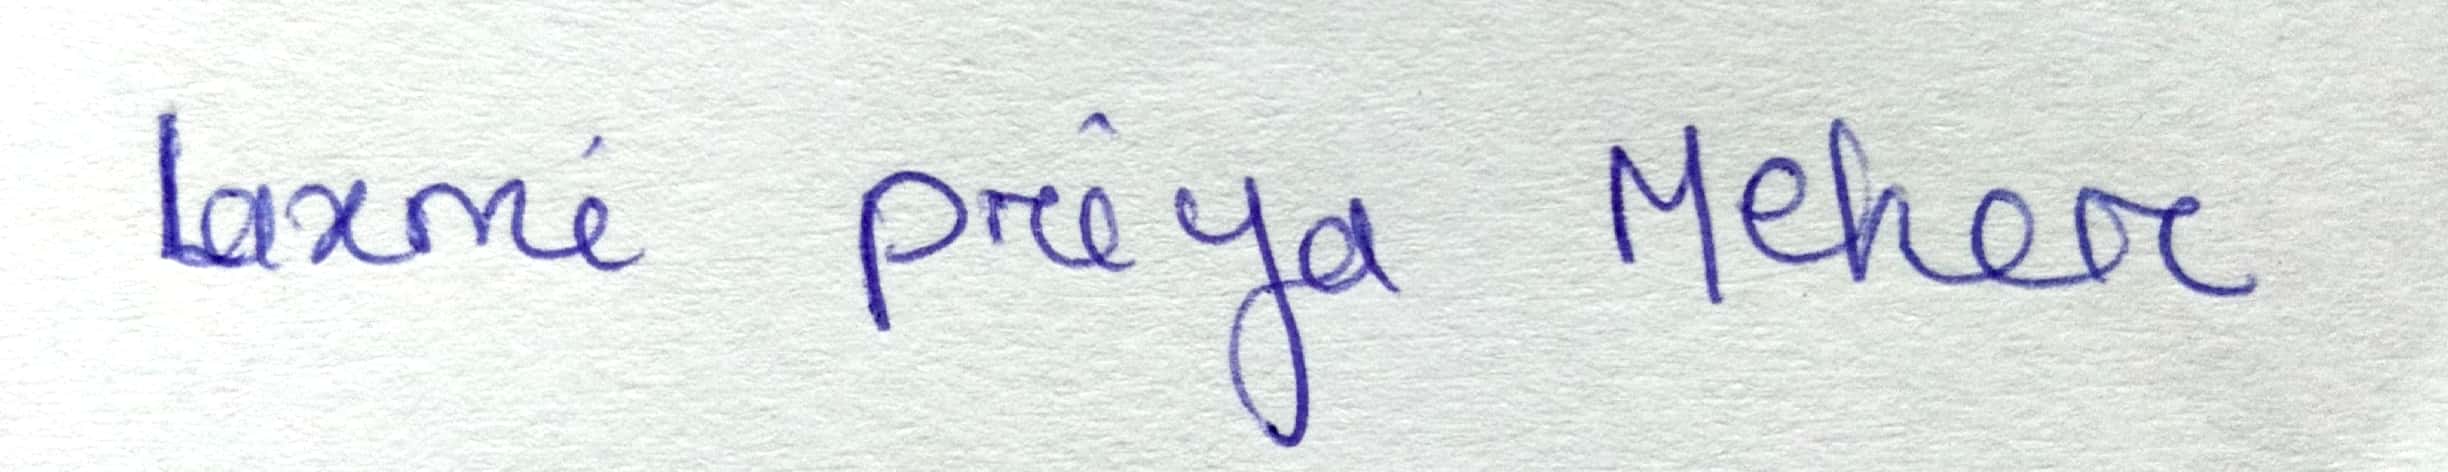 Laxmi priya Meher